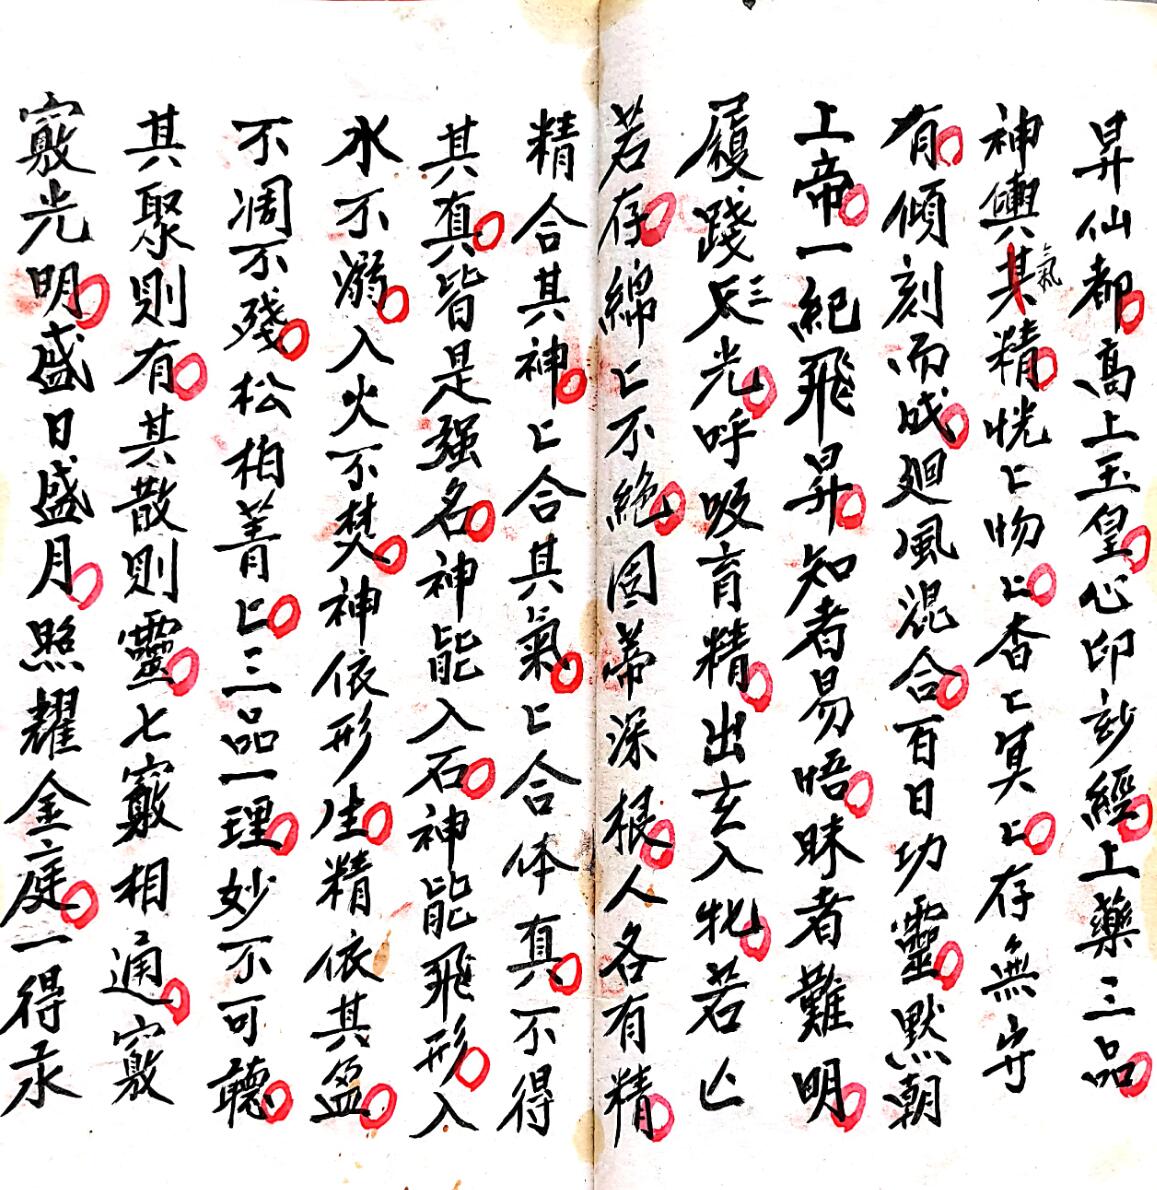 昇仙都○高上玉皇○心印玅經○上藥三品○
神與氣精○恍匕惚匕○杳匕冥匕○存無守
有○傾刻而成○廻風混合○百日功靈○默朝
上帝○一紀飛昇○知者易悟○昧者難明○
履踐天光○呼吸育精○出玄入牝○若亡
若存○綿匕不絕○固蒂深根○人各有精○
精合其神○匕合其氣○匕合体真○不得
其真○皆是强名○神能入石○神能飛形○入
水不溺○入火不焚○神依形生○精依其盈○
不凋不殘○松柏菁匕○三品一理○妙不可聽○
其聚則有○其散則靈○七竅相通○竅
竅光明○盛日盛月○照耀金庭○一得永